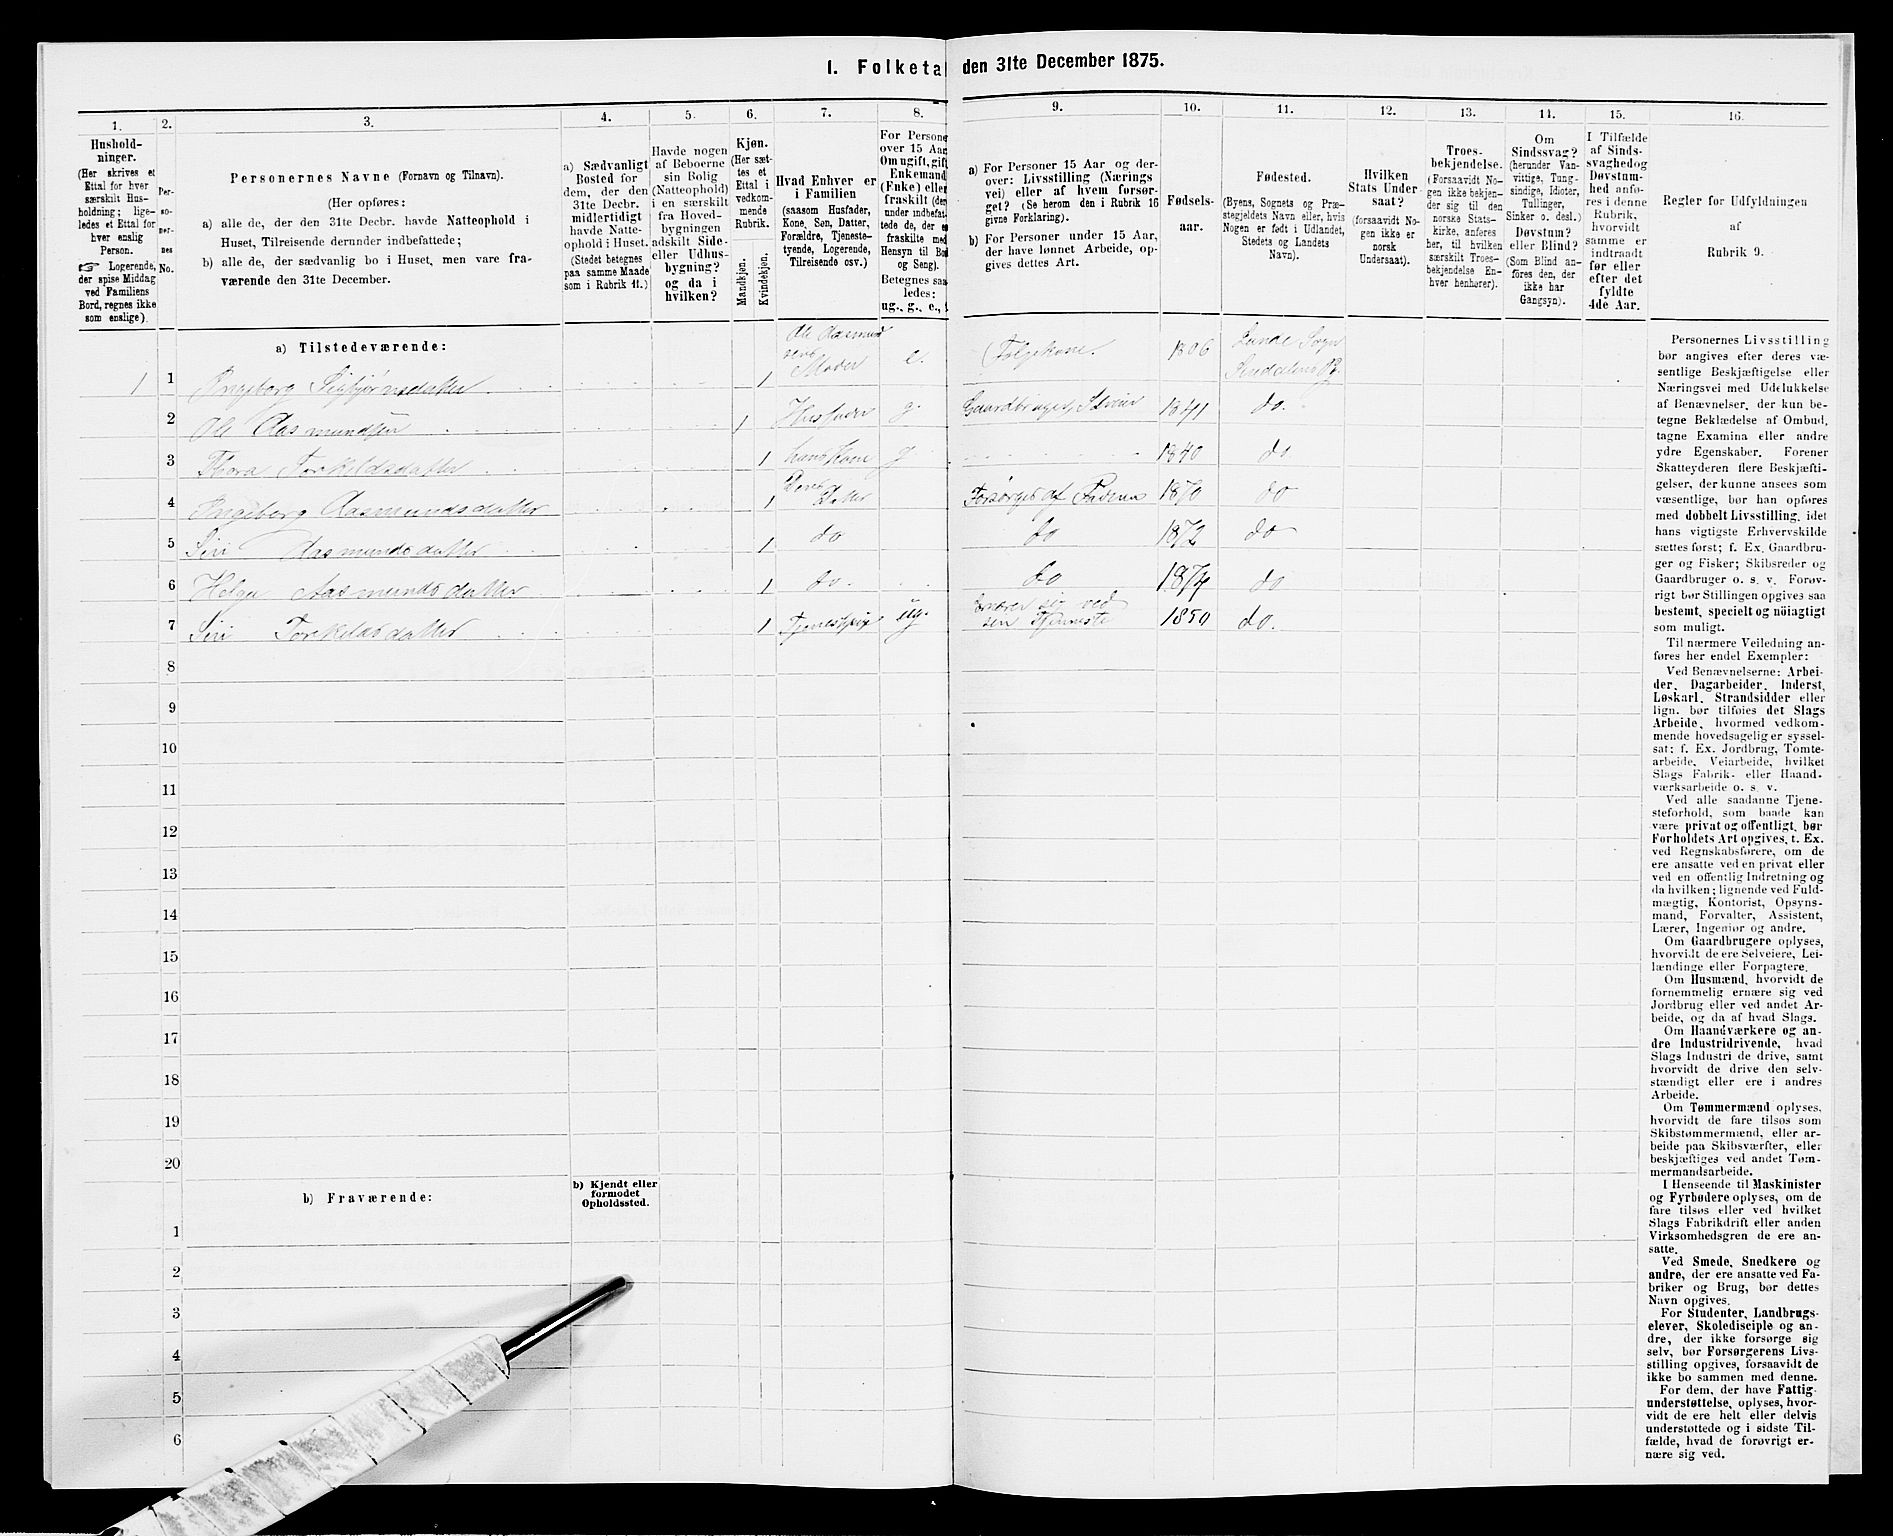 I. Folketal den 31te December 1875.
1.
Hushold-
ninger.
(Her skrives et
Ettal for hver
særskilt Hus-
holdning; lige-
ledes et Ettal for
hver enslig
Person.
☞ Logerende,
der spise Middag
ved Familiens
Bord, regnes ikke
som enslige).
2.
Per-
so-
ner-
nes
No.
3.
Personernes Navne (Fornavn og Tilnavn).
(Her opføres:
a) alle de, der den 31te Decbr. havde Natteophold i
Huset, Tilreisende derunder indbefattede;
b) alle de, der sædvanlig bo i Huset, men vare fra-
værende den 31te December.
4.
a) Sædvanligt
Bosted for
dem, der den
31te Decbr.
midlertidigt
havde Natte-
ophold i Huset.
(Stedet betegnes
paa samme Maade
som i Rubrik 11.)
5.
Havde nogen
af Beboerne
sin Bolig
(Natteophold)
i en særskilt
fra Hoved-
bygningen
adskilt Side-
eller Udhus-
bygning?
og da i
hvilken?
6.
Kjøn.
(Her sæt-
tes et
Ettal i
vedkom-
mende
Rubrik.
Mandkjøn.
Kvindekjøn.
7.
Hvad Enhver er
i Familien
(saasom Husfader,
Kone, Søn, Datter,
Forældre, Tjeneste-
tyende, Logerende,
Tilreisende osv.)
8.
For Persone
over 15 Aar
Om ugift, gift
Enkemand
(Enke) eller
fraskilt (der-
under indbefat-
tede de, der e
fraskilte med
Hensyn til Bo
og Seng).
Betegnes saa
ledes:
ug., g., e.,
9.
a) For Personer 15 Aar og der-
over: Livsstilling (Nærings
vei) eller af hvem forsør-
get? (Se herom den i Rubrik 16
givne Forklaring).
b) For Personer under 15 Aar,
der have lønnet Arbeide, op-
gives dettes Art.
10.
Fødsels-
aar.
11.
Fødested.
(Byens, Sognets og Præ-
stegjeldets Navn eller, hvis
Nogen er født i Udlandet,
Stedets og Landets
Navn).
12.
Hvilken
Stats Under-
saat?
(forsaavidt No-
gen ikke er
norsk
Undersaat).
13.
Troes-
bekjendelse.
(Forsaavidt No-
gen ikke bekjen-
der sig til den
norske Stats-
kirke, anføres
her, til hvilken
særskilt Troes-
bekjendelse En-
hver henhører).
14.
Om
Sindssvag?
(herunder Van-
vittige, Tung-
sindige, Idioter,
Tullinger,
Sinker o. desl.)
Døvstum?
eller Blind?
(Som Blind an-
føres den, der
ikke har
Gangsyn).
15.
I Tilfælde
af Sinds-
svaghed og
Døvstum-
hed anfø-
res i denne
Rubrik,
hvorvidt
samme er
indtraadt
før eller
efter det
fyldte
4de Aar.
16.
Regler for Udfyldningen
af
Rubrik 9.
a) Tilstedeværende:
1 1 Ingeborg Sigbjørnsdatter 1 Ole Aasmund
sens
Moder e. Følgekone. 1806 Lunde Sogn
2 Ole Aasmundsen 1 Husfader g. Gaardbruger, Selveier 1841 do.
3 Thora Torkildsdatter 1 hans Kone g 1840 do
4 Ingeborg Aasmundsdatter 1 Deres
Datter Forsørges af Faderen 1870 do
5 Siri Aasmundsdatter 1 do do 1872 do
6 Helga Aasmundsdatter 1 do. do 1874 do
7 Siri Torkelsdatter 1 Tjenestepige ug. Ernærer sig ved
sen Tjeneste 1850 do.
8
9
10
11
12
13
14
15
16
17
18
19
20
b) Fraværende:
b) Kjendt eller
formodet
Opholdssted.
1
2
3
4
5
6
Personernes Livsstilling
bør angives efter deres væ-
sentlige Beskjæftigelse eller
Næringsvei med Udelukkelse
af Benævnelser, der kun be-
tegne Beklædelse af Ombud,
tagne Examina eller andre
ydre Egenskaber. Forener
Skatteyderen flere Beskjæfti-
gelser, der kunne ansees som
væsentlige, bør han opføres
med dobbelt Livsstilling, idet
hans vigtigste Erhvervskilde
sættes først; f. Ex. Gaardbru-
ger og Fisker; Skibsreder og
Gaardbruger o. s. v. Forøv-
rigt bør Stillingen opgives saa
bestemt, specielt og nöiagtigt
som muligt.
Til nærmere Veiledning an-
føres her endel Exempler:
Ved Benævnelserne: Arbei-
der, Dagarbeider, Inderst,
Løskarl, Strandsidder eller
lign. bør tilføies det Slags
Arbeide, hvormed vedkom-
mende hovedsagelig er syssel-
sat; f. Ex. Jordbrug, Tomte-
arbeide, Veiarbeide, hvilket
Slags Fabrik- eller Haand-
værksarbeide o. s. v.
Ved alle saadanne Tjene-
steforhold, som baade kan
være privat og offentligt, bør
Forholdets Art opgives, t. Ex.
ved Regnskabsførere, om de
ere ansatte ved en privat eller
ved en offentlig Indretning og
da hvilken; lignende ved Fuld-
mægtig, Kontorist, Opsyns-
mand, Forvalter, Assistent,
Lærer, Ingeniør og andre.
Om Gaardbrugere oplyses,
hvorvidt de ere Selveiere, Lei-
lændinge eller Forpagtere.
Om Husmænd, hvorvidt de
fornemmelig ernære sig ved
Jordbrug eller ved andet Ar-
beide, og da af hvad Slags.
Om Haandværkere og an-
dre Industridrivende, hvad
Slags Industri de drive, samt
hvorvidt de drive den selv-
stændigt eller ere i andres
Arbeide.
Om Tømmermænd oplyses,
hvorvidt de fare tilsøs som
Skibstømmermænd, eller ar-
beide paa Skibsværfter, eller
beskjæftiges ved andet Tøm-
mermandsarbeide.
I Henseende til Maskinister
og Fyrbødere oplyses, om de
fare tilsøs eller ved hvilket
Slags Fabrikdrift eller anden
Virksomhedsgren de ere an-
satte.
Ved Smede, Snedkere og
andre, der ere ansatte ved Fa-
briker og Brug, bør dettes
Navn opgives.
For Studenter, Landbrugs-
elever, Skoledisciple og an-
dre, der ikke forsørge sig
selv, bør Forsørgerens Livs-
stilling opgives, forsaavidt de
ikke bo sammen med denne.
For dem, der have Fattig-
understøttelse, oplyses, hvor-
vidt de ere helt eller delvis
understøttede og i sidste Til-
fælde, hvad de forøvrigt er-
nære sig ved.